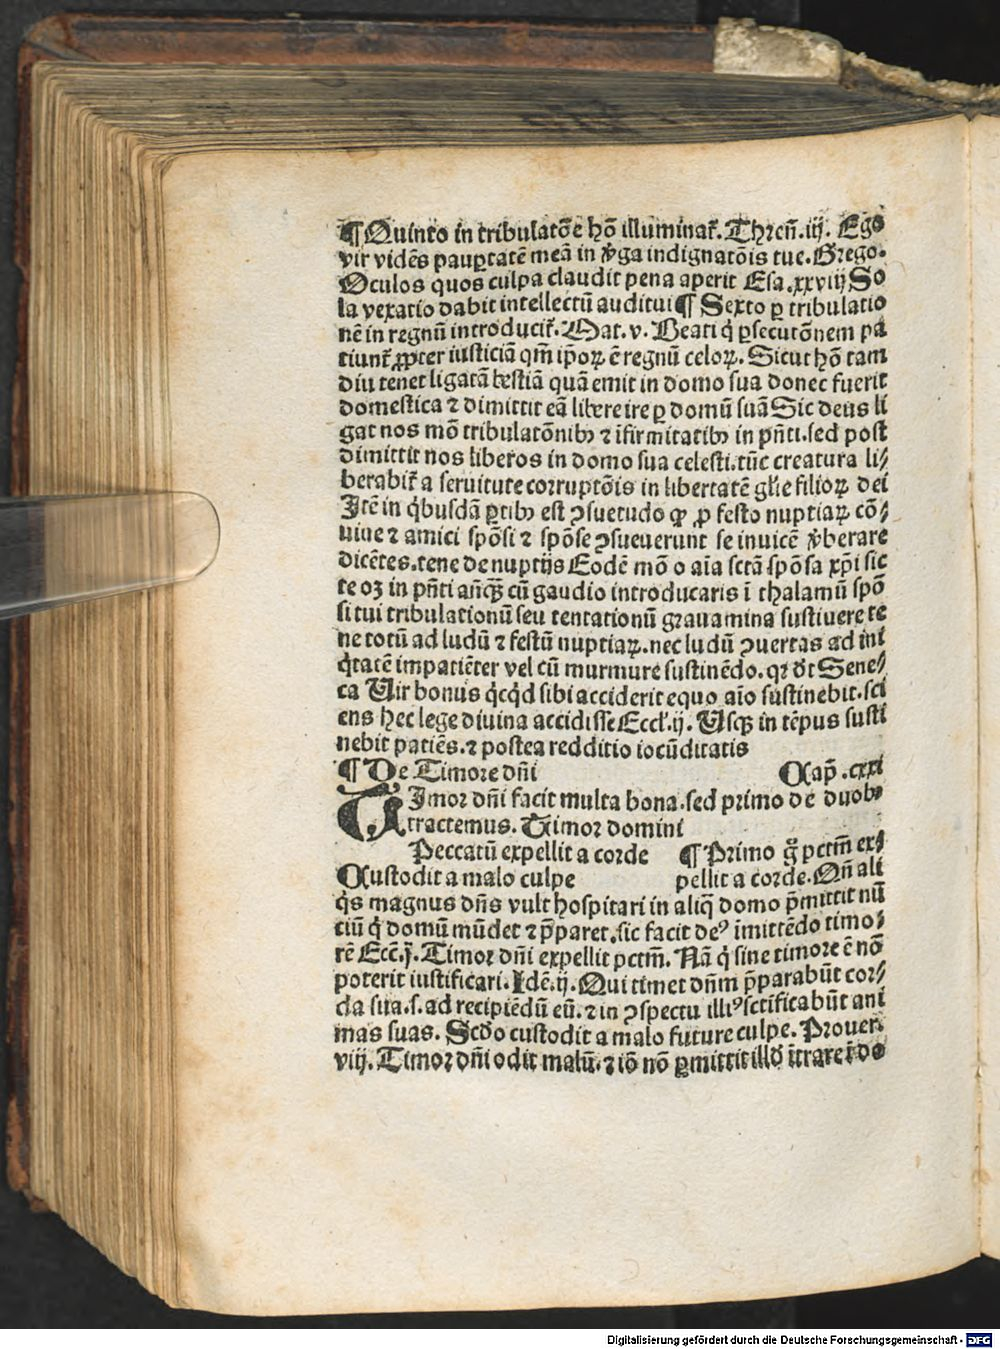 ¶ Quinto in tribulatōe hō illuminat᷑. Threñ. iij. Ego
vir vidēs paup̱tatē meā in v̓ga indignatōis tue. Grego.
Oculos quos culpa claudit pena aperit Esa. xxviij So
la vexatio dabit intellectū auditui ¶ Sexto p̱ tribulatio
nē in regnū introducit᷑. Mat. v. Beati q̇ p̱secutōnem pa
tiunt᷑ ꝓpter iusticiā qm̄ ip̄oꝝ ē regnū celoꝝ. Sicut hō tam
diu tenet ligatā bestiā quā emit in domo sua donec fuerit
domestica ⁊ dimittit eā libere ire p̱ domū suā Sic deus li
gat nos mō tribulatōnibꝫ ⁊ ifirmitatibꝫ in pn̄ti. sed post
dimittit nos liberos in domo sua celesti. tūc creatura li⸗
berabit᷑ a seruitute corruptōis in libertatē gl̄ie filioꝝ dei
Itē in q̇busdā p̱tibꝫ est ꝯsuetudo ꝙ ꝓ festo nuptiaꝝ cō⸗
uiue ⁊ amici spōsi ⁊ spōse ꝯsueuerunt se inuicē v̓berare
dicētes. tene de nuptijs Eodē mō o aīa sctā spōsa xp̄i sic
te oꝫ in pn̄ti an̄qꝫ cū gaudio introducaris ī thalamū spō
si tui tribulationū seu tentationū grauamina sustiuere te
ne totū ad ludū ⁊ festū nuptiaꝝ. nec ludū ꝯuertas ad ini
q̇tatē impatiēter vel cū murmure sustinēdo. qꝛ d̄t Sene⸗
ca Uir bonus q̇cq̇d sibi acciderit equo aīo sustinebit. sci
ens hec lege diuina accidisse Eccl̓. ij. Usqꝫ in tēpus susti
nebit patiēs. ⁊ postea redditio iocūditatis
¶ De Timore dn̄i Cap̄. cxxi
Timor dn̄i facit multa bona. sed primo de duobꝰ
tractemus. Timor domini
Peccatū expellit a corde ¶ Primo g̊ pctm̄ ex⸗
Custodit a malo culpe pellit a corde. Qn̄ ali
q̇s magnus dn̄s vult hospitari in aliq̇ domo p̄mittit nū
ciū q̇ domū mūdet ⁊ p̄paret. sic facit deꝰ īmittēdo timo⸗
rē Ecc̄. j. Timor dn̄i expellit pctm̄. Nā q̇ sine timore ē nō
poterit iustificari. Idē. ij. Qui timet dn̄m p̄parabūt cor⸗
da sua. s. ad recipiēdū eū. ⁊ in ꝯspectu illiꝰ sctificabūt ani
mas suas. Scd̄o custodit a malo future culpe. Prouer.
viij. Timor dn̄i odit malū. ⁊ iō nō p̱mittit illd̄ ītrare ī do
Digitalisierung gefördert durch die Deutsche Forschungsgemeinschaft - DFG